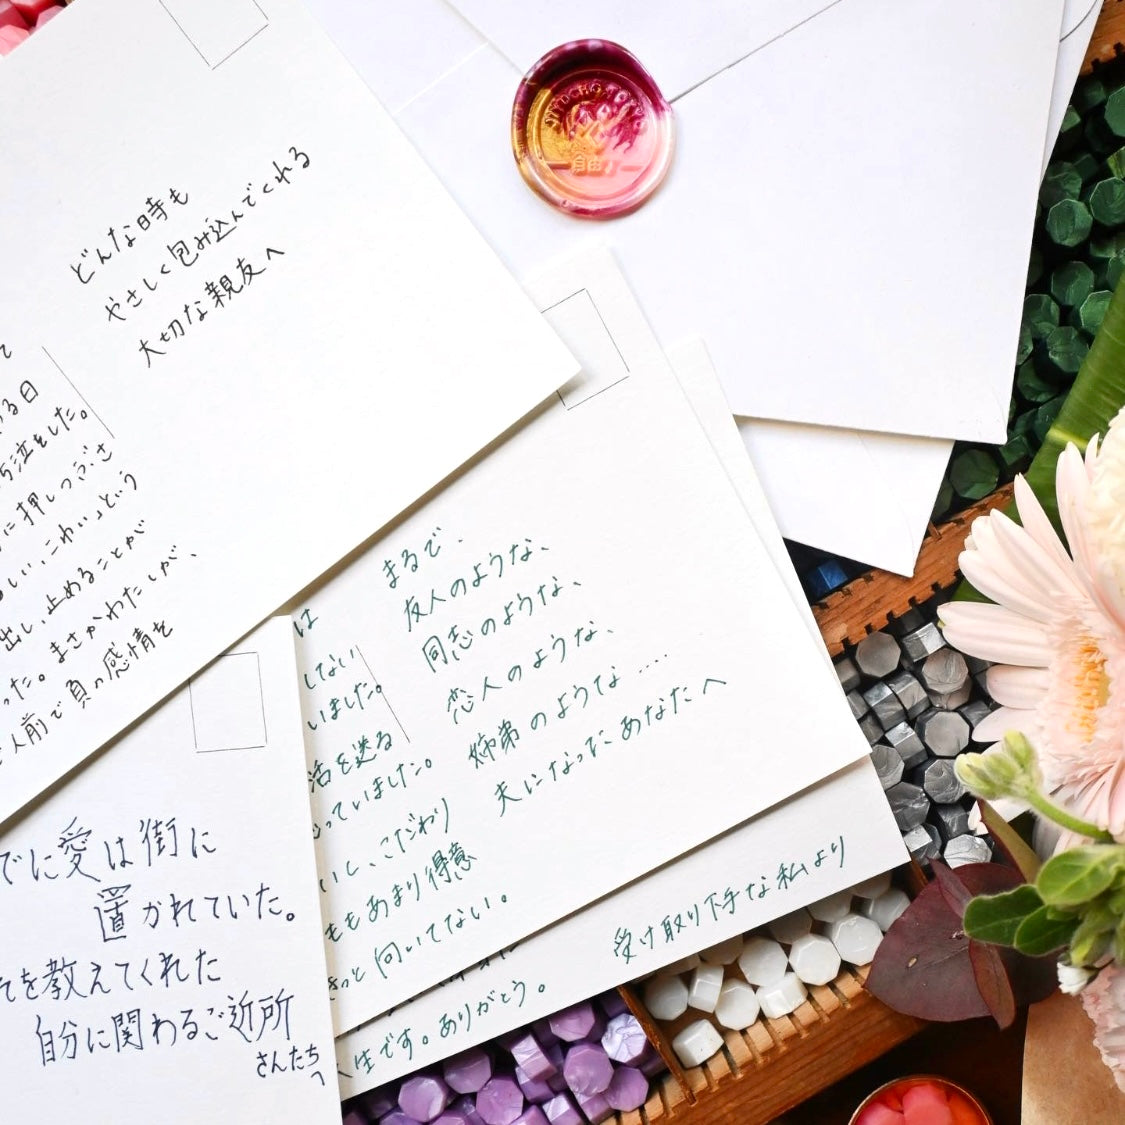 どんな時も
やさしく包み込んでくれる
大切な親友へ
て
る日
ち泣をした。
に押しつぶさ
しい、こわい」という
出し、止めることが
った。まさかわたしが、
人前で負の感情を
まるで、
友人のような、
同志のような、
恋人のような、
姉弟のような……
夫になったあなたへ
は
しない
いました。
活を送る
っていました。
いし、こだわり
ももあまり得意
きっと向いてない。
受け取り下手な私より
人生です。ありがとう。
でに愛は街に
置かれていた。
それを教えてくれた
自分に関わるご近所
さんたちへ
自由丁